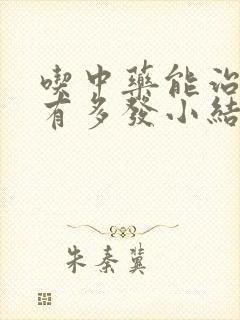 喫中藥能治
有多發小結
朱秦冀